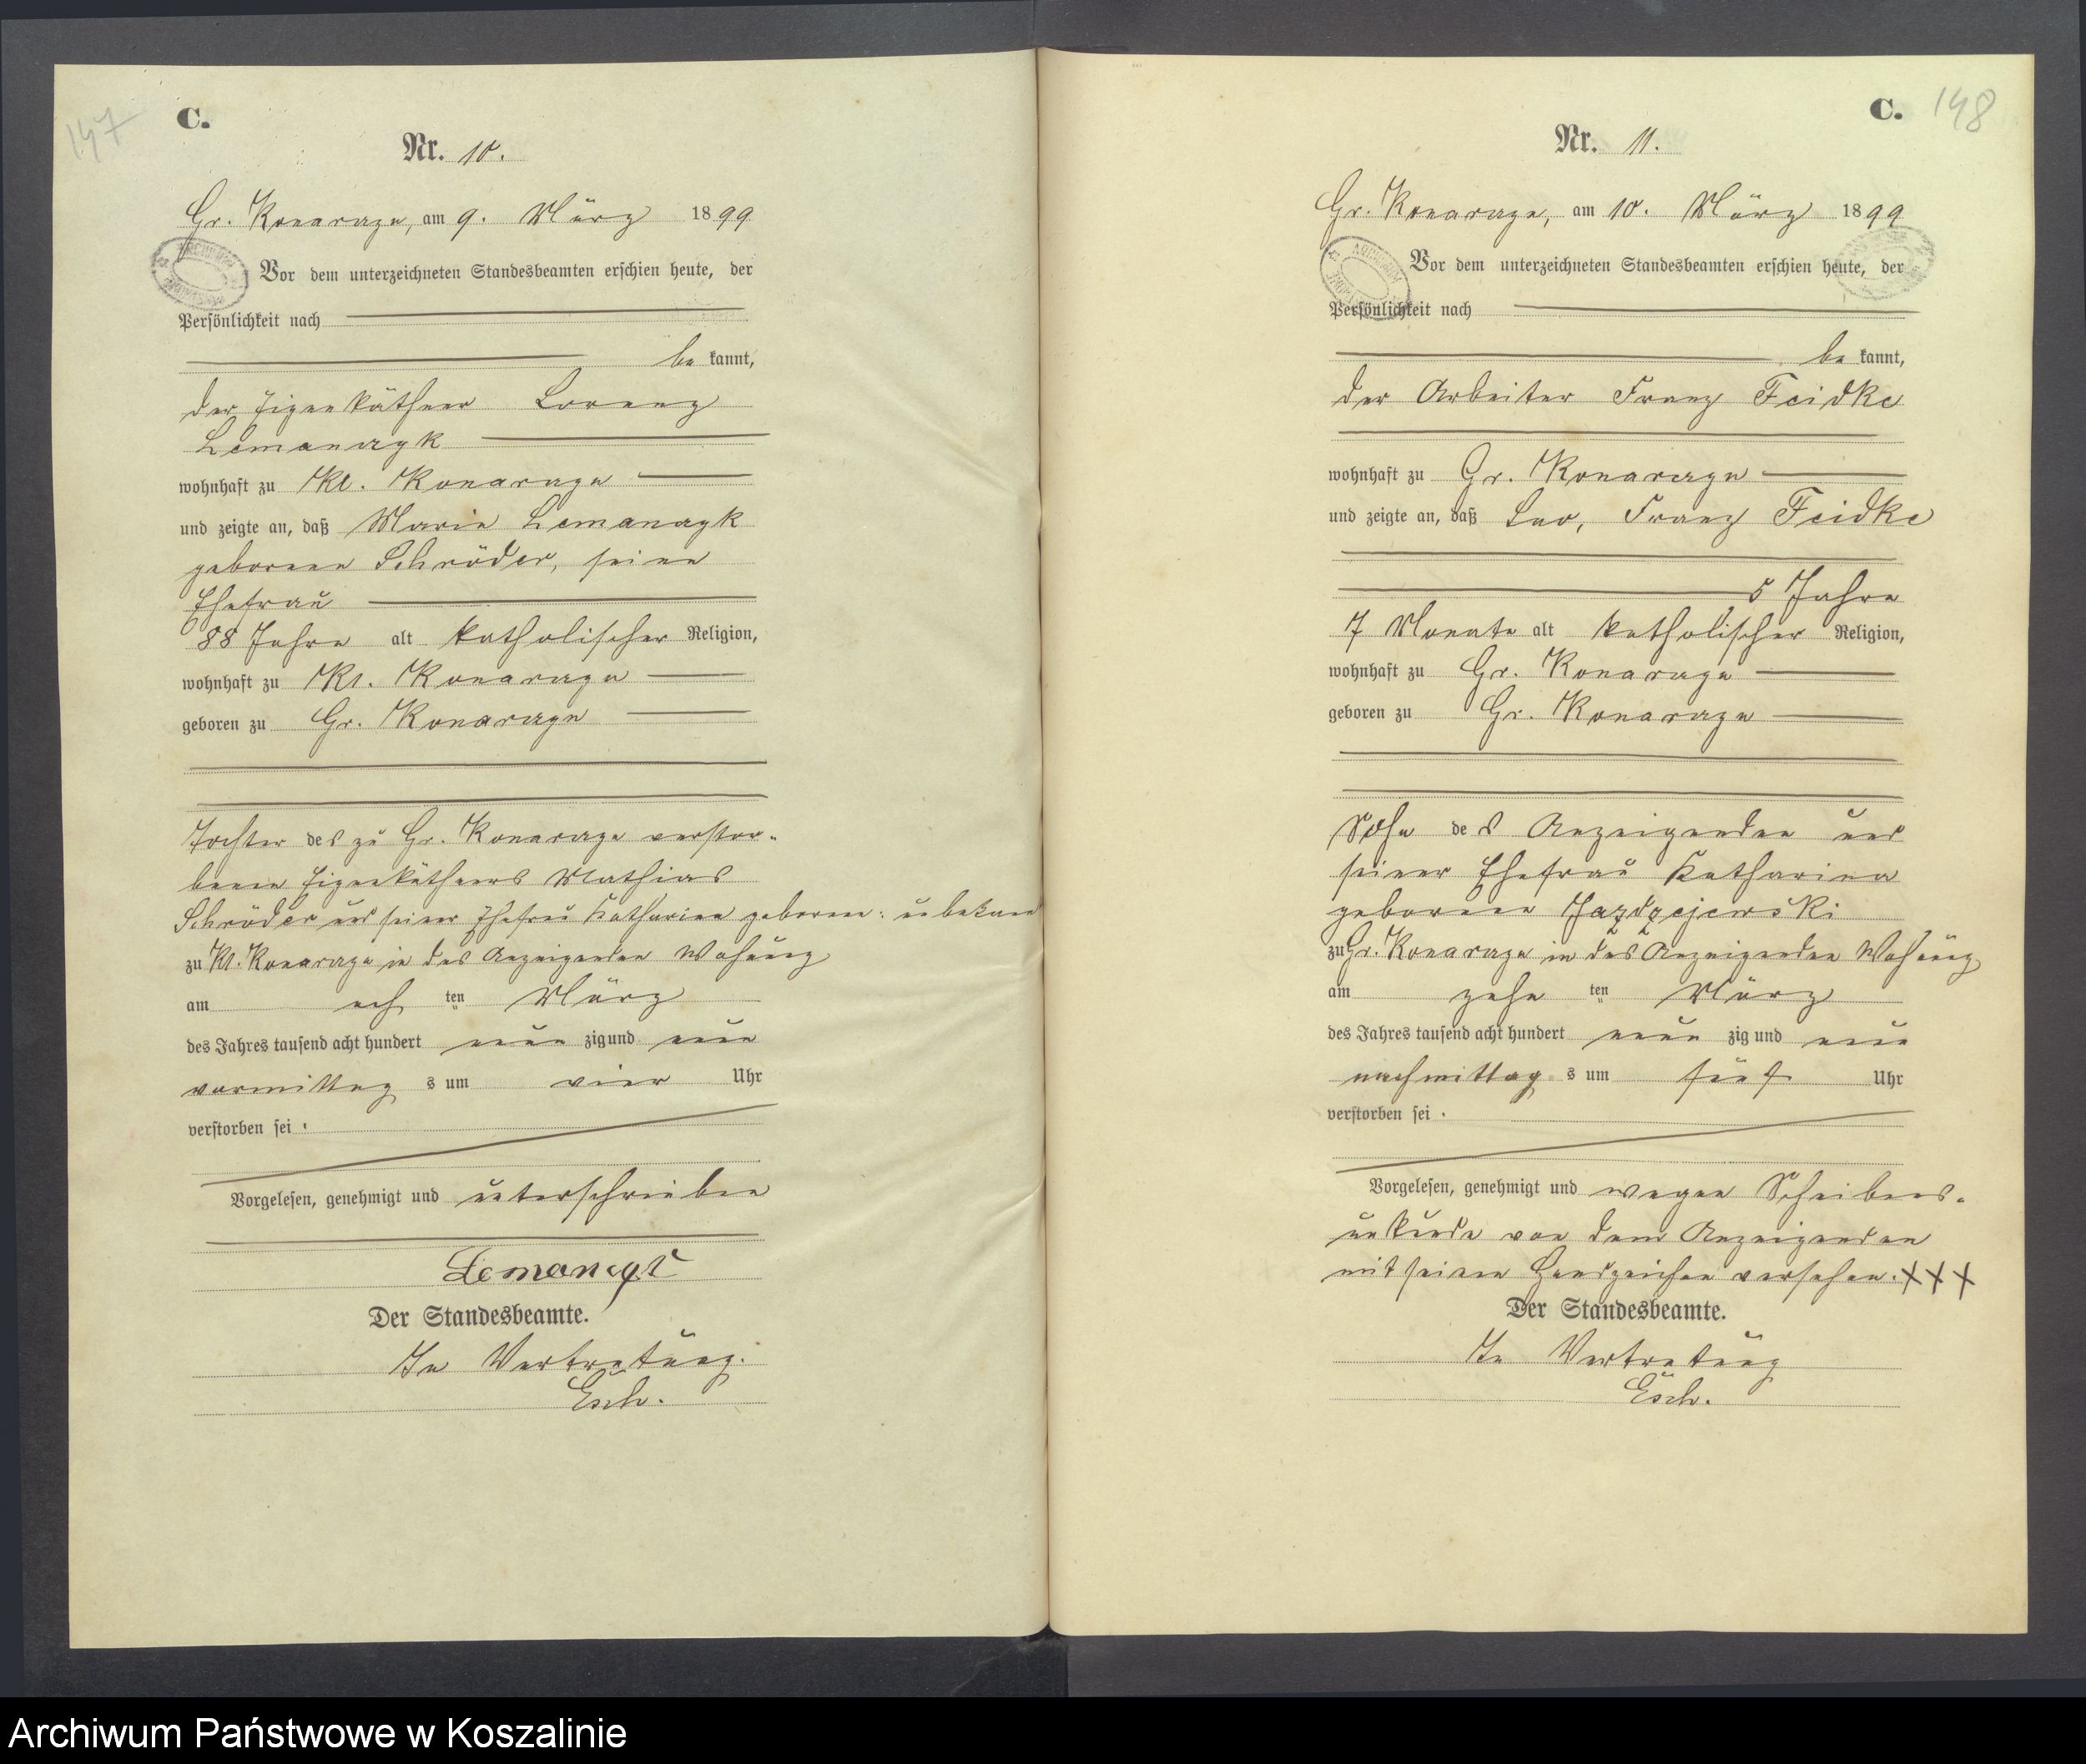 147
C.
Nr. 10.
Gr. Konarczyn, am 9. März 1899
Vor dem unterzeichneten Standesbeamten erschien heute, der
Persönlichkeit nach
be kannt,
der Eigenkäthner Lorenz
Lemanczyk
wohnhaft zu Kl. Konarczyn
und zeigte an, daß Marie Lemanczyk
geborene Schröder, seine
Ehefrau
88 Jahre alt katholischer Religion,
wohnhaft zu Kl. Konarczyn
geboren zu Gr. Konarczyn
Tochter des zu Gr. Konarczyn verstor-
benen Eigenkäthners Mathias
Schröder und seiner Ehefrau Katharina geborene: unbekannt
zu Kl. Konarczyn in des Anzeigenden Wohnung
am ach ten März
des Jahres tausend acht hundert neun zig und neun
vormittag s um vier Uhr
verstorben sei.
Vorgelesen, genehmigt und unterschrieben
Lemanczyk
Der Standesbeamte.
In Vertretung.
Esch.
C. 148
Nr. 11.
Gr. Konarczyn, am 10. März 1899
Vor dem unterzeichneten Standesbeamten erschien heute, der
Persönlichkeit nach
be kannt,
der Arbeiter Franz Feidke
wohnhaft zu Gr. Konarczyn
und zeigte an, daß Leo, Franz Feidke
5 Jahre
7 Monate alt katholischer Religion,
wohnhaft zu Gr. Konarczyn
geboren zu Gr. Konarczyn
Sohn des Anzeigenden und
seiner Ehefrau Katharina
geborene Jazdzejewski
zu Gr. Konarczyn in des Anzeigenden Wohnung
am zehn ten März
des Jahres tausend acht hundert neun zig und neun
nachmittag s um fünf Uhr
verstorben sei.
Vorgelesen, genehmigt und wegen Schreibens-
unkunde von dem Anzeigenden
mit seinem Handzeichen versehen. XXX
Der Standesbeamte.
In Vertretung
Esch.
Archiwum Państwowe w Koszalinie